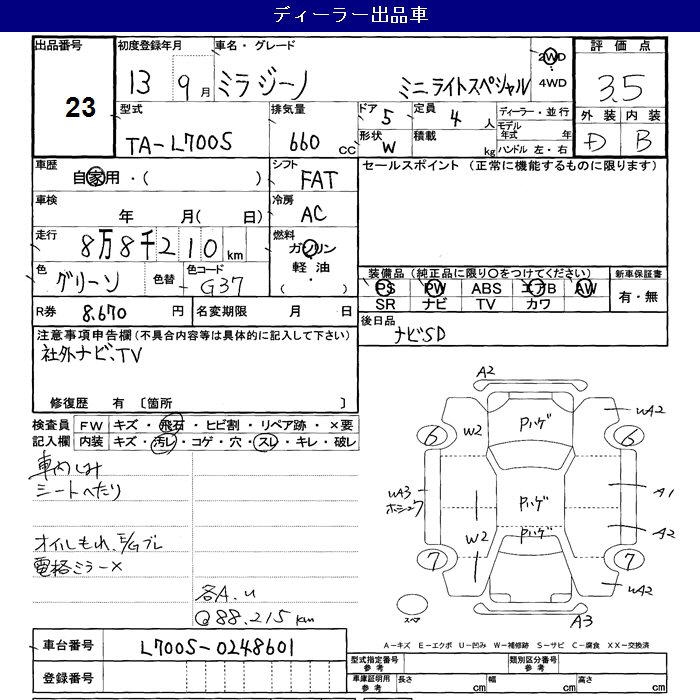 ディーラー出品車
出品番号
23
初度登録年月
13 9月
車名・グレード
ミラジーノ ミニライトスペシャル
2WD
4WD
評価点
3.5
外装 内装
D B
型式
TA-L700S
排気量
660 cc
ドア 5
定員 4 人
形状 W
積載 kg
ディーラー・並行
モデル年式 年
ハンドル 左・右
車歴
自家用・( )
シフト
FAT
セールスポイント (正常に機能するものに限ります)
車検
年 月( 日)
冷房
AC
走行
8万8千210km
燃料
ガソリン
軽油
( ・ )
色
グリーン
色替
色コード
G37
装備品 (純正品に限り○をつけてください)
PS PW ABS エアB AW
SR ナビ TV カワ
新車保証書
有・無
R券 8.670 円
名変期限 月 日
後日品
ナビSD
注意事項申告欄(不具合内容等は具体的に記入して下さい)
社外ナビ、TV
修復歴 有 〔箇所 〕
検査員
記入欄
FW キズ・飛石・ヒビ割・リペア跡・×要
内装 キズ・汚レ・コゲ・穴・スレ・キレ・破レ
車内しみ
シートへたり
オイルもれ、E/Gブレ
電格ミラー×
各A.U
@88.215km
A2
6 W2 Pハゲ 6 wA2
wA3
ホシュウ
Pハゲ A1
W2 Pハゲ A2
7 7 wA2
スペア
A3
A-キズ E-エクボ U-凹み W-補修跡 S-サビ C-腐食 XX-交換済
車台番号 L700S-0248601
登録番号
型式指定番号
参考
類別区分番号
参考
車庫証明用
参考
長さ cm
幅 cm
高さ cm